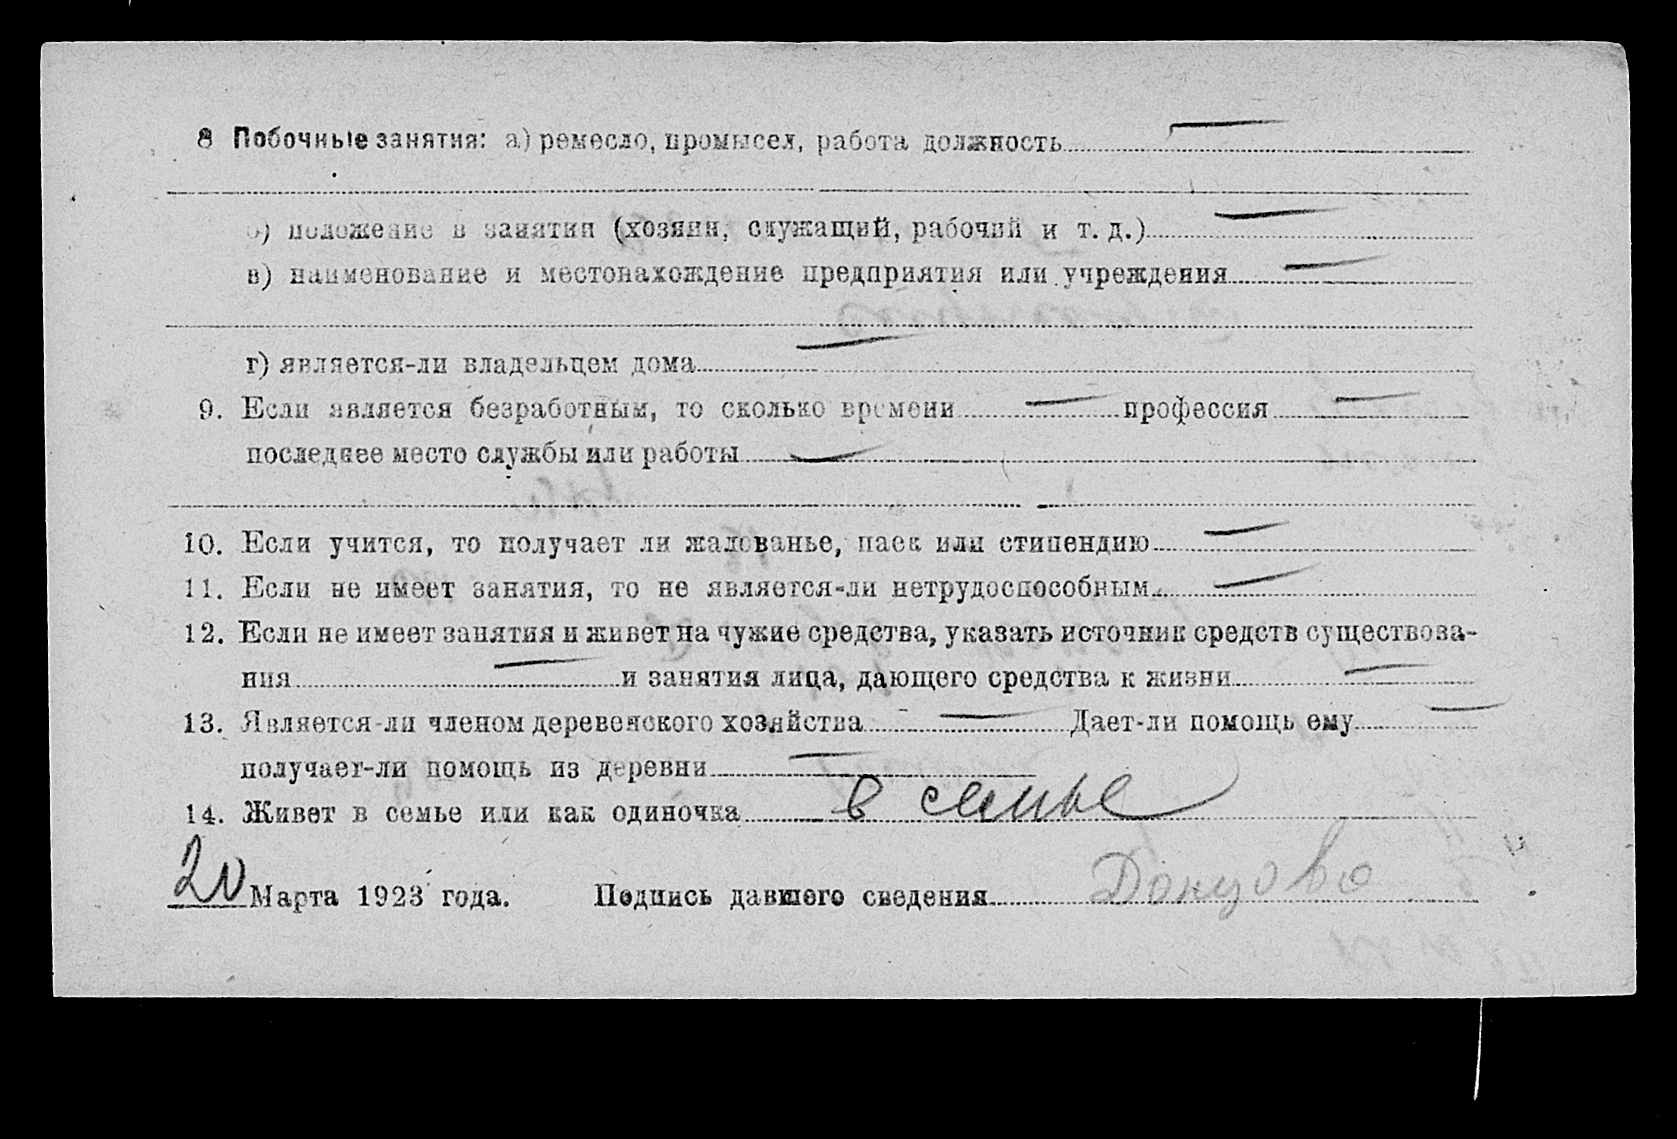 8 Побочные занятия: а) ремесло, промысел, работа должность —
б) положение в занятии (хозяин, служащий, рабочий и т. д.) —
в) наименование и местонахождение предприятия или учреждения —
г) является-ли владельцем дома —
9. Если является безработным, то сколько времени — профессия —
последнее место службы или работы —
10. Если учится, то получает ли жалованье, паек или стипендию —
11. Если не имеет занятия, то не является-ли нетрудоспособным —
12. Если не имеет занятия и живет на чужие средства, указать источник средств существова-
ния — и занятия лица, дающего средства к жизни —
13. Является-ли членом деревенского хозяйства — Дает-ли помощь ему —
получает-ли помощь из деревни —
14. Живет в семье или как одиночка в семье
20 Марта 1923 года. Подпись давшего сведения Донцова